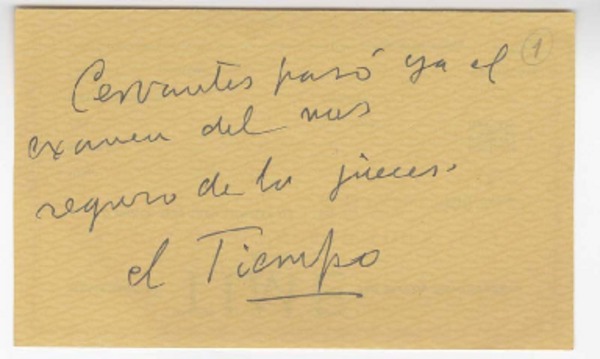 Cervantes pasó ya el 1
examen del mas
seguro de los jueces.
el Tiempo